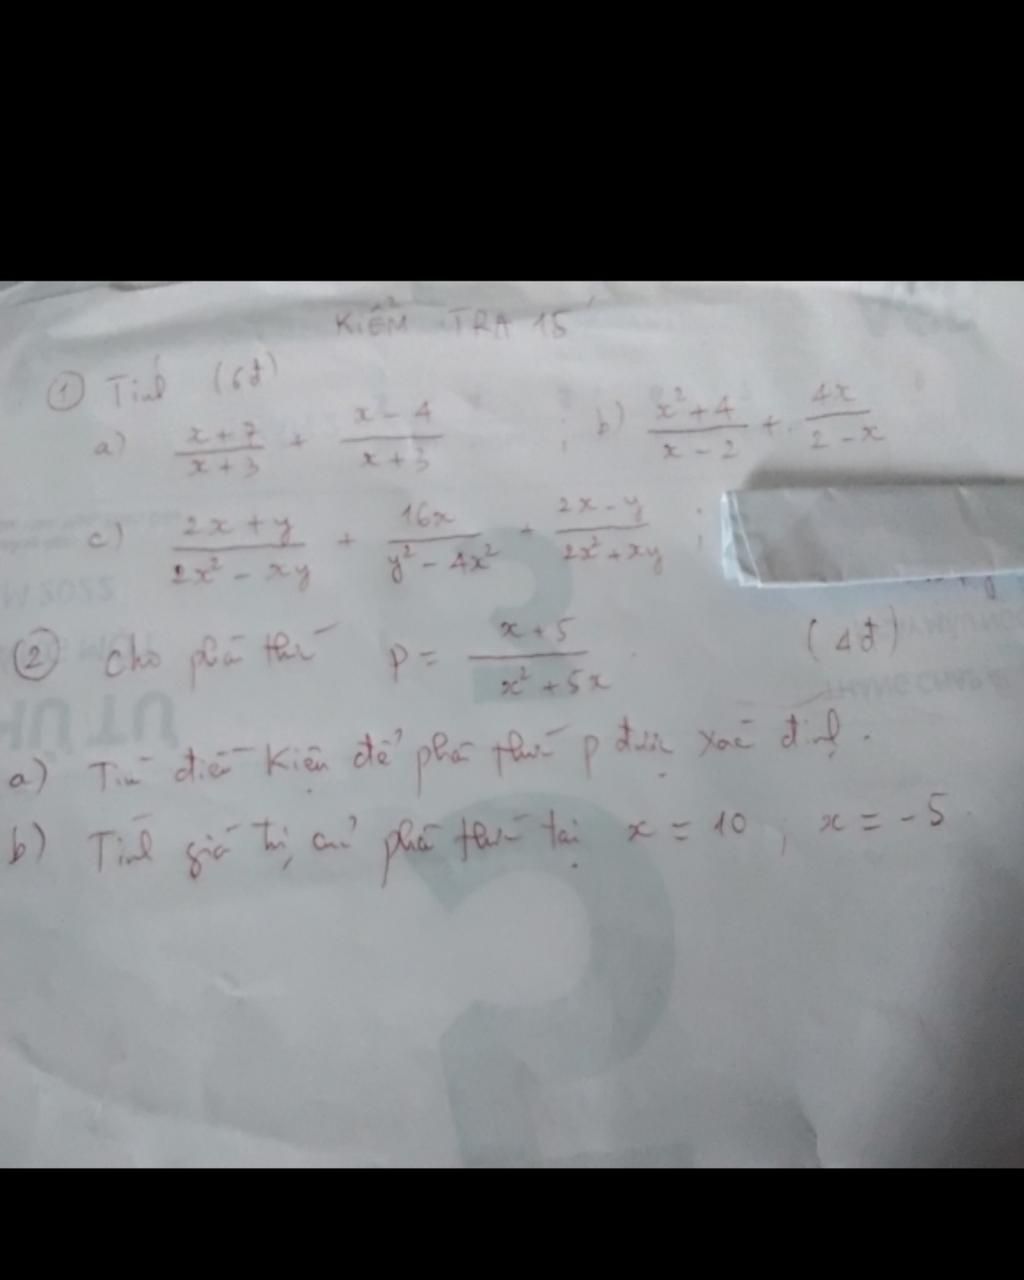 KIỂM TRA 15'
① Tính (6đ)
a) \frac{x+7}{x+3} + \frac{x-4}{x+3} ; b) \frac{x²+4}{x-2} + \frac{4x}{2-x}
c) \frac{2x+y}{2x²-xy} + \frac{16x}{y²-4x²} + \frac{2x-y}{2x²+xy} ;
② Cho phân thức P = \frac{x+5}{x²+5x} (4đ)
a) Tìm điều kiện để phân thức P được xác định.
b) Tính giá trị của phân thức tại x = 10 ; x = -5